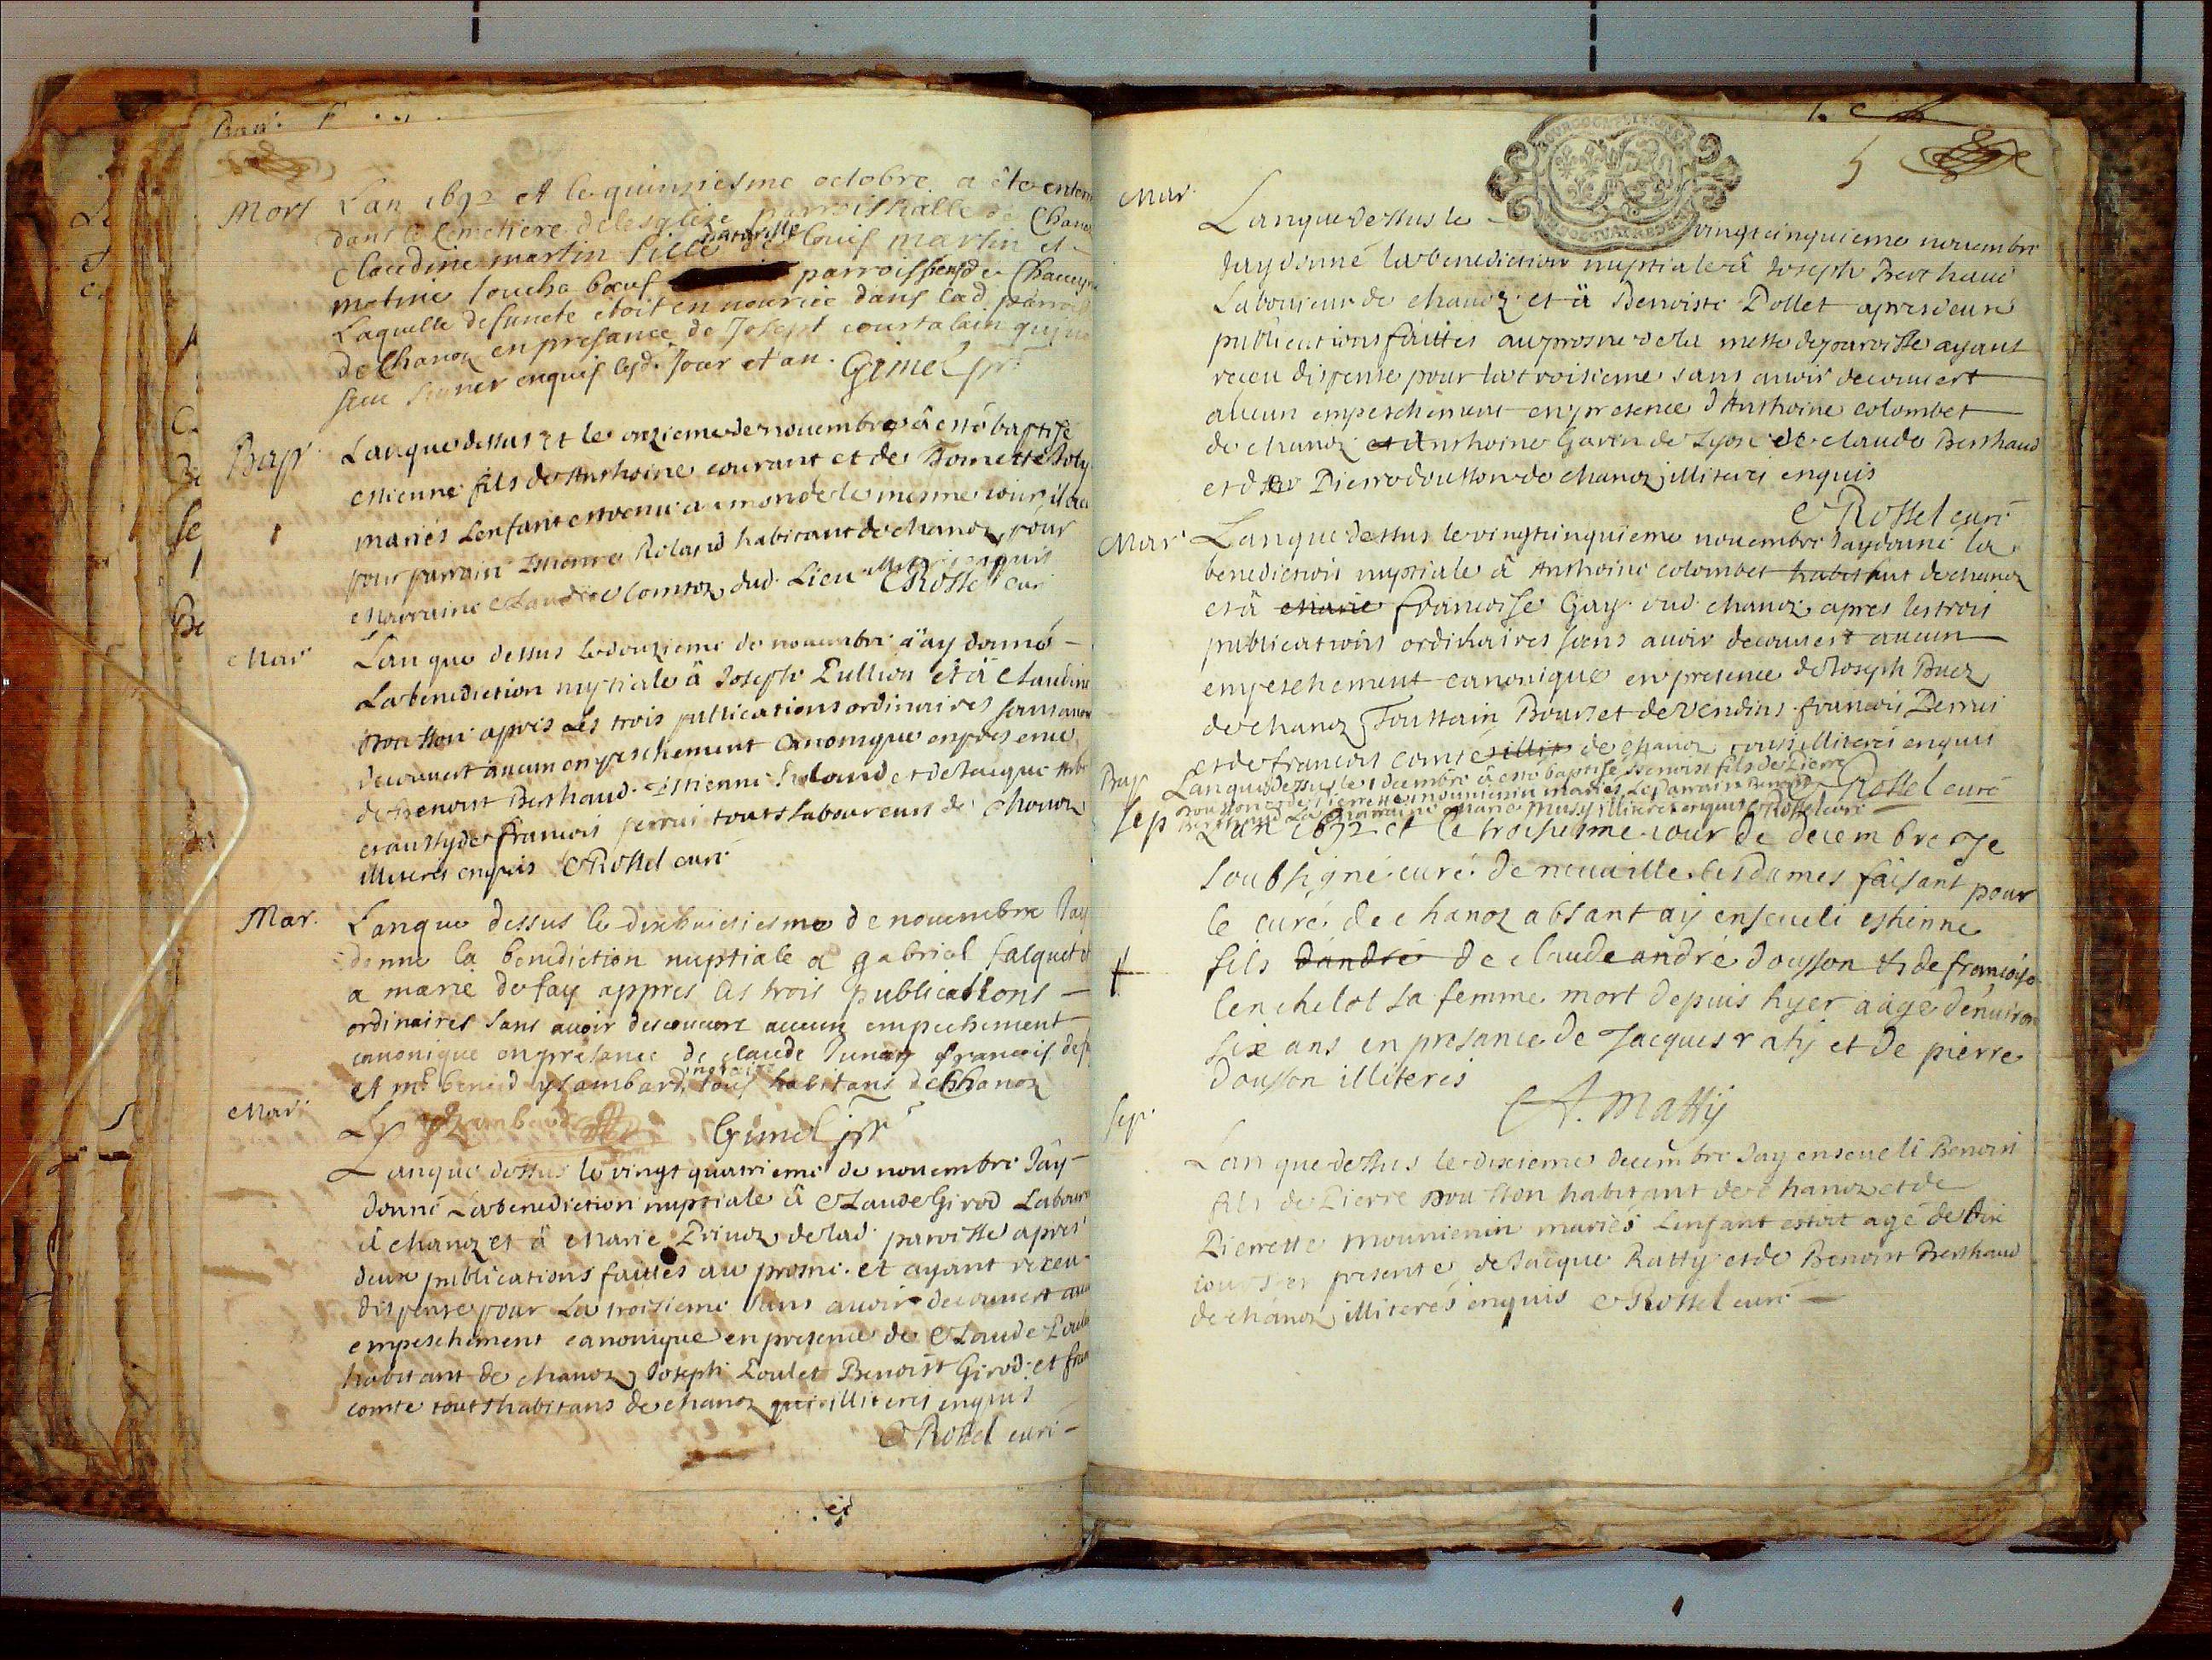 Mort Lan 1692 et le quinziesme octobre a ete enter
dans le cimetiere de lesglize parroissialle de Chano
claudine martin fille naturelle de Louis martin et
parroissiens de
Laquelle defuncte etoit en nourice dans lad. parroi
de Chanoz en presance de Joseph courtalain qui
signer enquis lesd. Jour et an. Gimel
Bap. Lanque dessus et le onzieme de novembre â esté baptisé
estienne fils de Anthoine courant et de Tomette Joly
mariés Lenfant est venu au monde le mesme iour il a eu
pour parrain Estienne Roland habitant de chanoz, pour
Marraine Claudine Comtoz dud. Lieu illiteris enquis
CRossel curé
Mar Lan que dessus le douzieme de novembre i'ay donné
La benediction nuptiale â Joseph Pullion et â Claudine
Dousson apres Les trois publications ordinaires sans avoir
decouvert aucun empeschement canonique en presence
de Benoist Berthaud. Estienne Roland et de Jacque
et aussy de francois perrui touts Laboureurs de Chanoz
illiteres enquis CRossel curé
Mar. Lanque dessus le dixhuictiesme de novembre Jay
donne la benediction nuptiale a gabriel falquet et
a marie defay appres les trois publications
ordinaires sans avoir descouvert aucun empechement
canonique en presance de claude Junay francois
et me. benoid ysambard, notaire tous habitans de Chanoz
Gimel
Mar. Lanque dessus le vingt quatrieme de novembre Jây
donné La benediction nuptiale â Claude Girod Laboure
â chanoz et â Marie Prinoz de lad. paroisse apres
deux publications faittes au prosne. et ayant receu
dispense pour La troisieme sans avoir decouvert
empeschement canonique en presence de Claude
habitant de chanoz, Joseph Poulet Benoist Girod. et fran
comte touts habitans de chanoz qui illiteres enquis
CRossel curé
5
Mar. Lanque dessus le vingtcinquieme novembre
Jay donné la benediction nuptiale â Joseph Berthaud
Laboureur de chanoz et â Benoiste Pollet apres deux
publications faittes au prosne de la messe de paroisse ayant
receu dispense pour la troisieme sans avoir decouvert
aucun empeschement en presence d'Anthoine colombet
de chanoz et Anthoine Gavin de Lyon de claude Berthaud
et de Pierre dousson de chanoz illiteres enquis
CRossel curé
Mar Lanque dessus le vingtcinquieme novembre Jay donné la
benediction nuptiale â Anthoine colombet habitant de chanoz
et â Marie francoise Gay dud. chanoz apres les trois
publications ordinaires sans avoir decouvert aucun
empeschement canonique en presence de Joseph Buez
de chanoz Toussain Bouvet de Vendins francois Perrui
et de francois comte de chanoz touts illiteres enquis
CRossel curé
Bap Lanque dessus le 1 decembre â esté baptisé Benoist fils de Pierre
Dousson et de Pierrette mariés. Le Parrain Benoist
Berthaud La Marraine Marie Musy illiteres enquis CRossel curé
Sep Lan 1692 et le troisiesme iour de decembre Je
soubsigné curé de neuville les dames faisant pour
le curé de chanoz absant ay enseveli estienne
fils dandré de claude andré dousson et de francoise
lenchelot sa femme mort depuis hyer aagé denviron
six ans en presance de Jacques raty et de pierre
dousson illiteres
A. Matty
Sep. Lan que dessus le dixieme decembre Jay enseveli Benoist
fils de Pierre Dousson habitant de chanoz et de
Pierrette Mounienin mariés Lenfant estoit agé de dix
iours en presence de Jacque Ratty et de Benoist Berthaud
de chanoz illiterés enquis CRossel curé